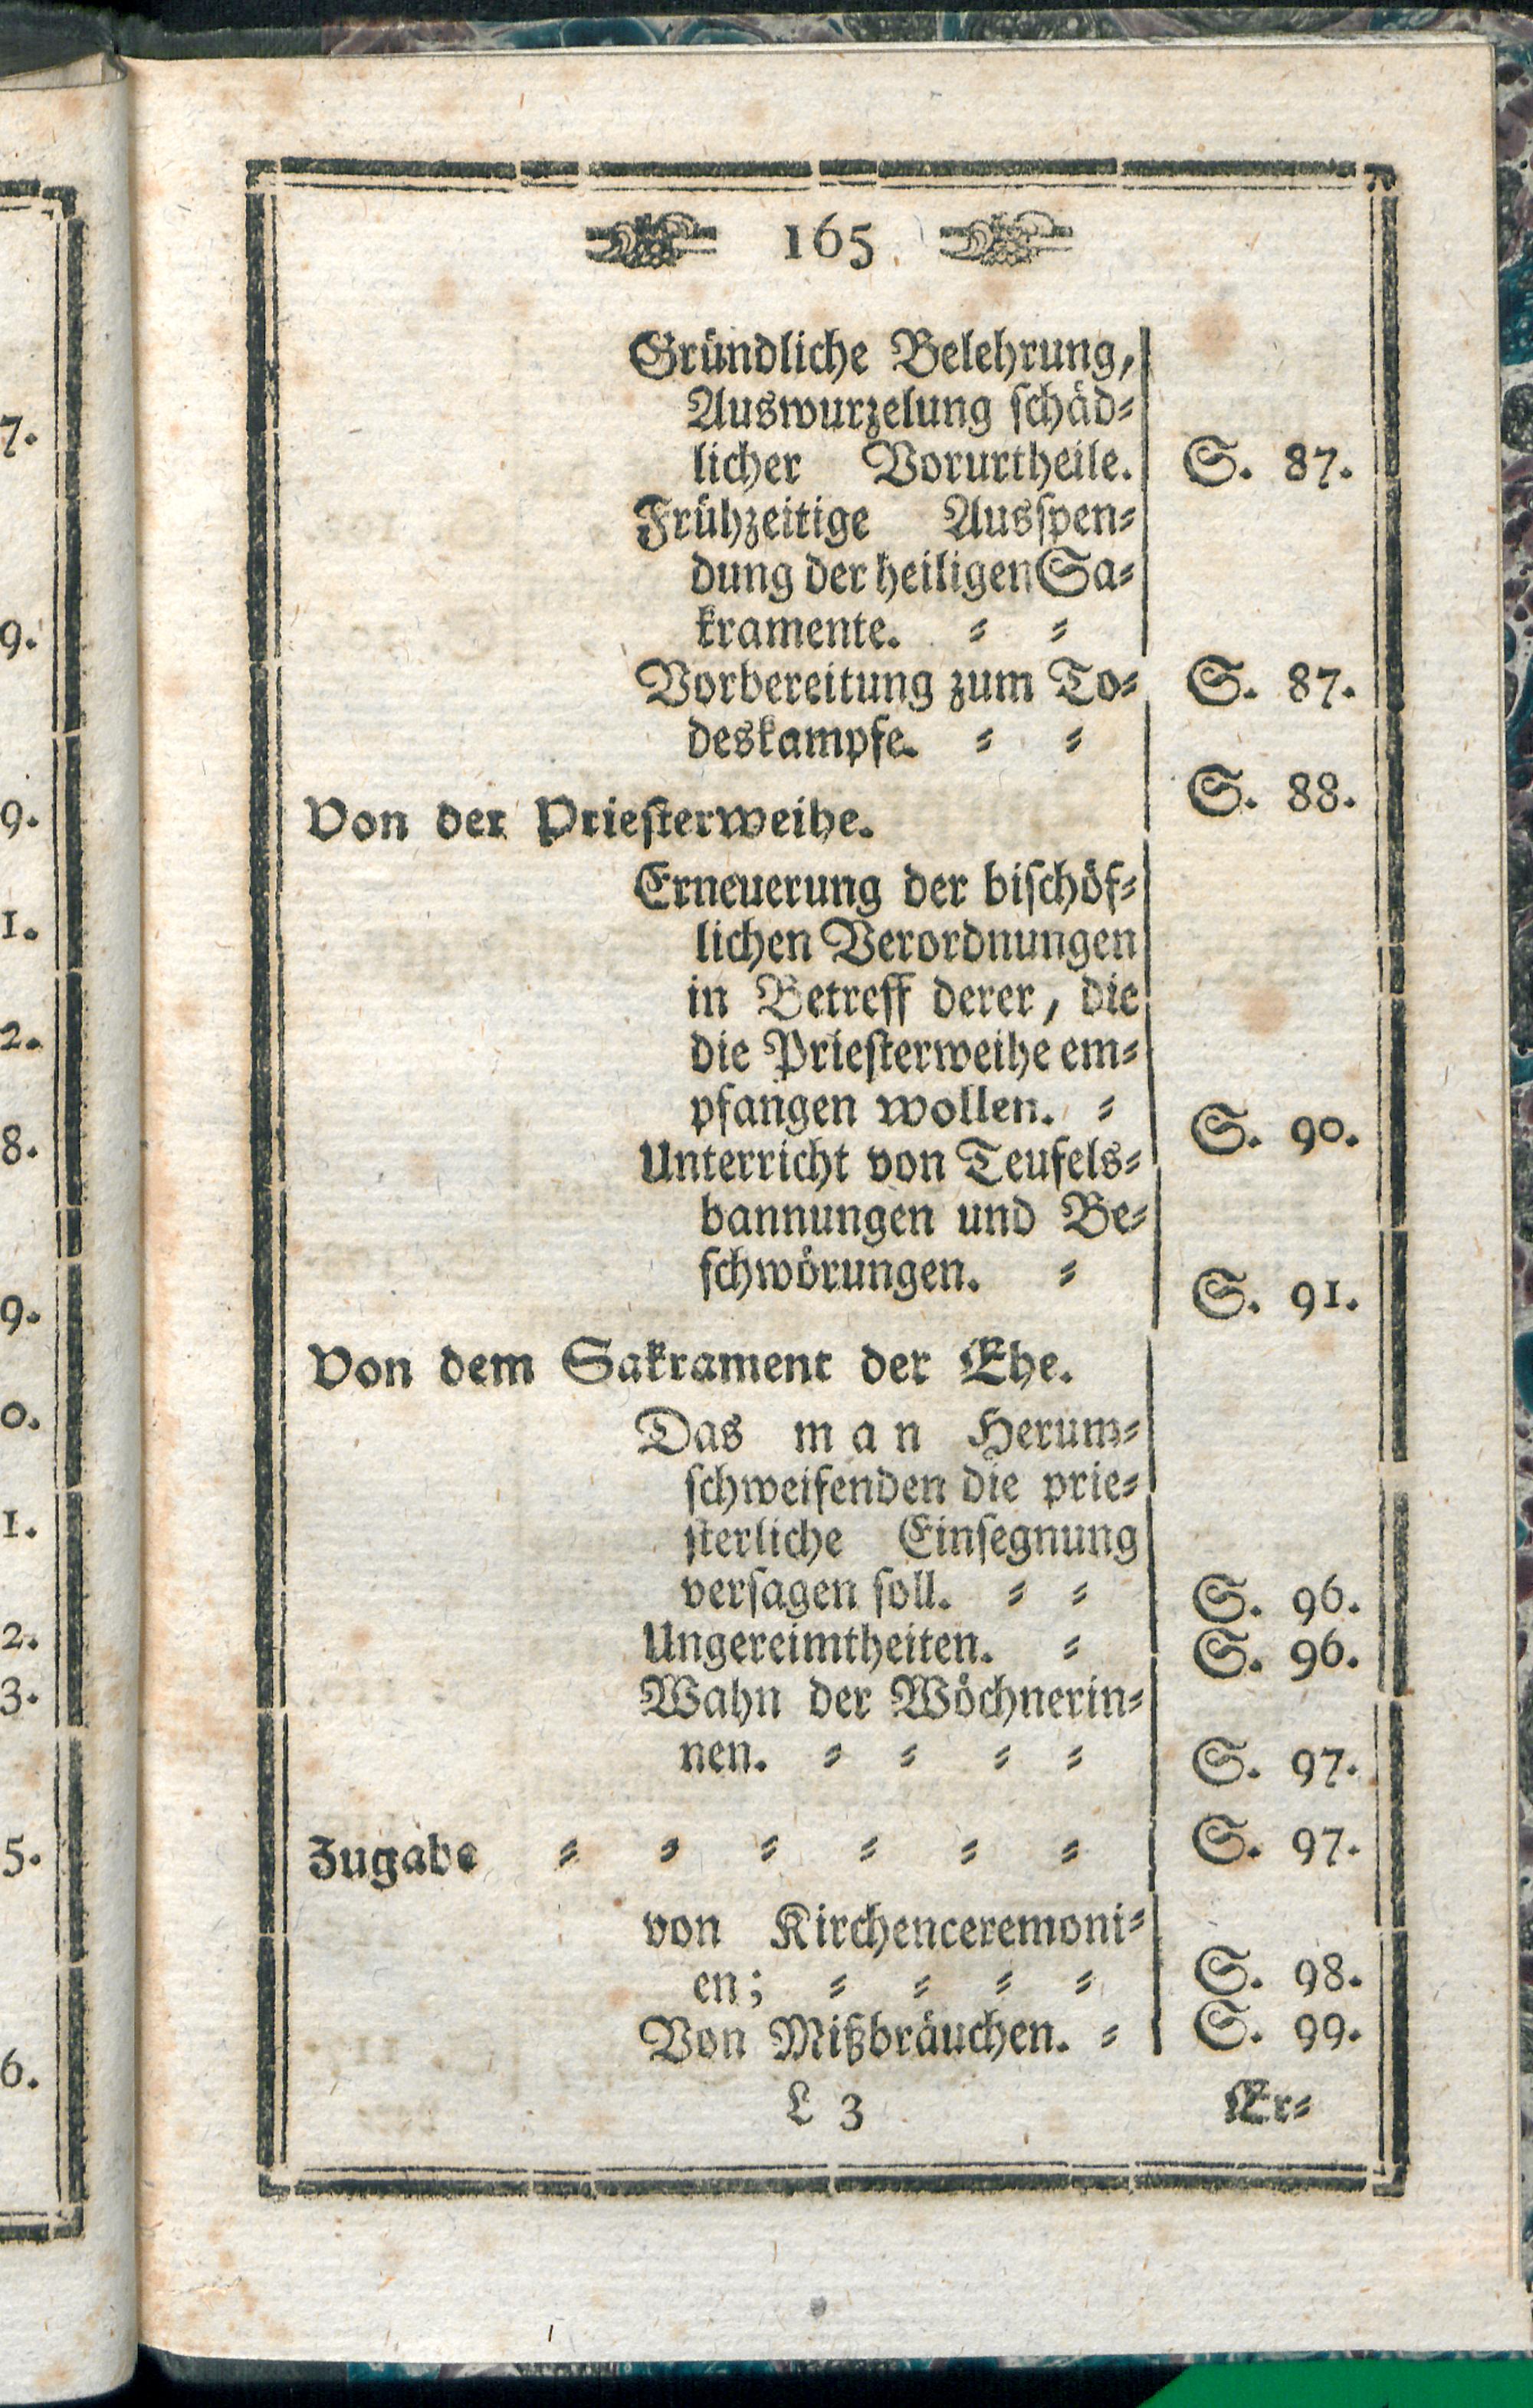 165
Gründliche Belehrung,
Auswurzelung schäd⸗
licher Vorurtheile. S. 87.
Frühzeitige Ausspen⸗
dung der heiligen Sa⸗
kramente. ⸗ ⸗
Vorbereitung zum To⸗ S. 87.
deskampfe. ⸗ ⸗
S. 88.
Von der Priesterweihe.
Erneuerung der bischöf⸗
lichen Verordnungen
in Betreff derer, die
die Priesterweihe em⸗
pfangen wollen. ⸗ S. 90.
Unterricht von Teufels⸗
bannungen und Be⸗
schwörungen. ⸗ S. 91.
Von dem Sakrament der Ehe.
Das man Herum⸗
schweifenden die prie⸗
sterliche Einsegnung
versagen soll. ⸗ ⸗ S. 96.
Ungereimtheiten. ⸗ S. 96.
Wahn der Wöchnerin⸗
nen. ⸗ ⸗ ⸗ ⸗ S. 97.
Zugabe ⸗ ⸗ ⸗ ⸗ ⸗ ⸗ S. 97.
von Kirchenceremoni⸗
en; ⸗ ⸗ ⸗ ⸗ S. 98.
Von Mißbräuchen. ⸗ S. 99.
L 3 Er⸗